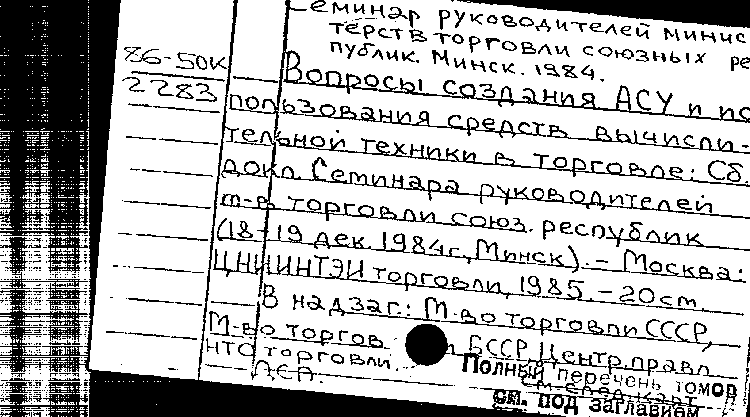 Семинар руководителей минис
терств торговли союзных ре
публик. Минск. 1984.
86-50к
2283
Вопросы создания АСУ и ис
пользования средств вычисли-
тельной техники в торговле: Сб.
докл. Семинара руководителей
м-в торговли союз. республик
(18-19 дек. 1984г., Минск). - Москва:
ЦНИИНТЭИ торговли, 1985. - 20см.
В надзаг.: М-во торговли СССР,
М-во торгов. БССР, Центр. правл
НТО торговли.
Полный перечень томов
см. под заглавием